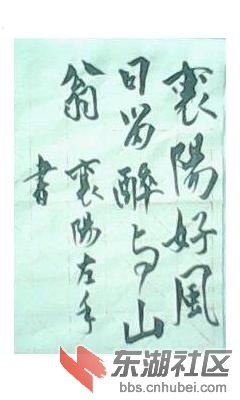 襄陽好風
日留醉与山
翁 襄陽左手
書
东湖社区
bbs.cnhubei.com